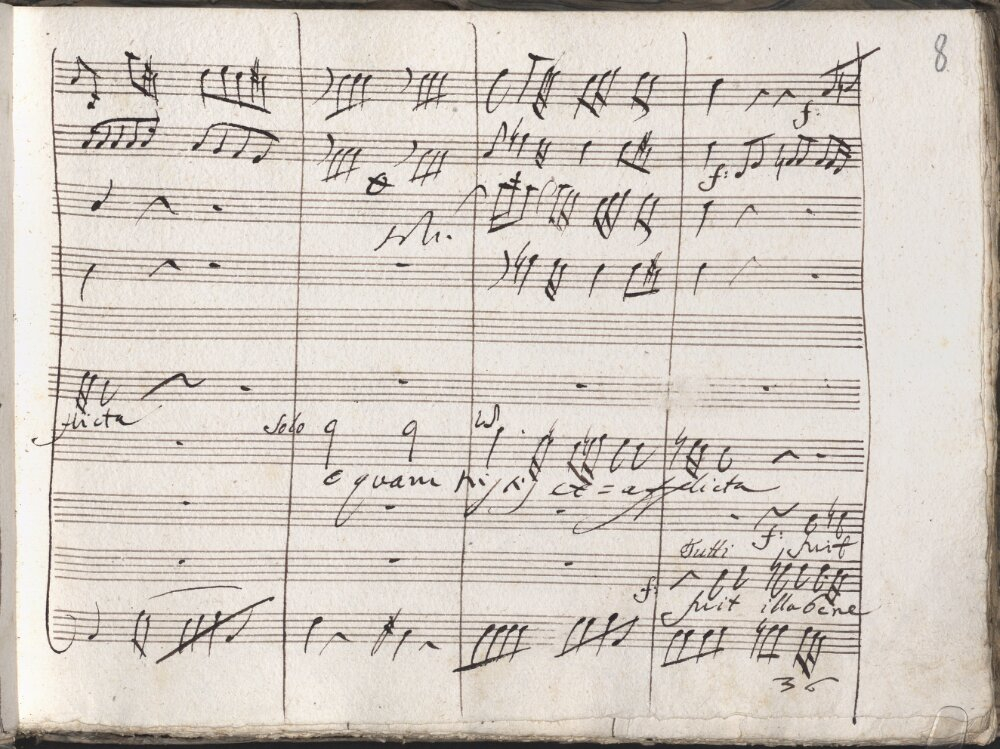 8
f:
f:
Soli.
flicta
Solo
o quam tristis et = afflicta
Tutti
f: fuit
f:
fuit illa bene
36